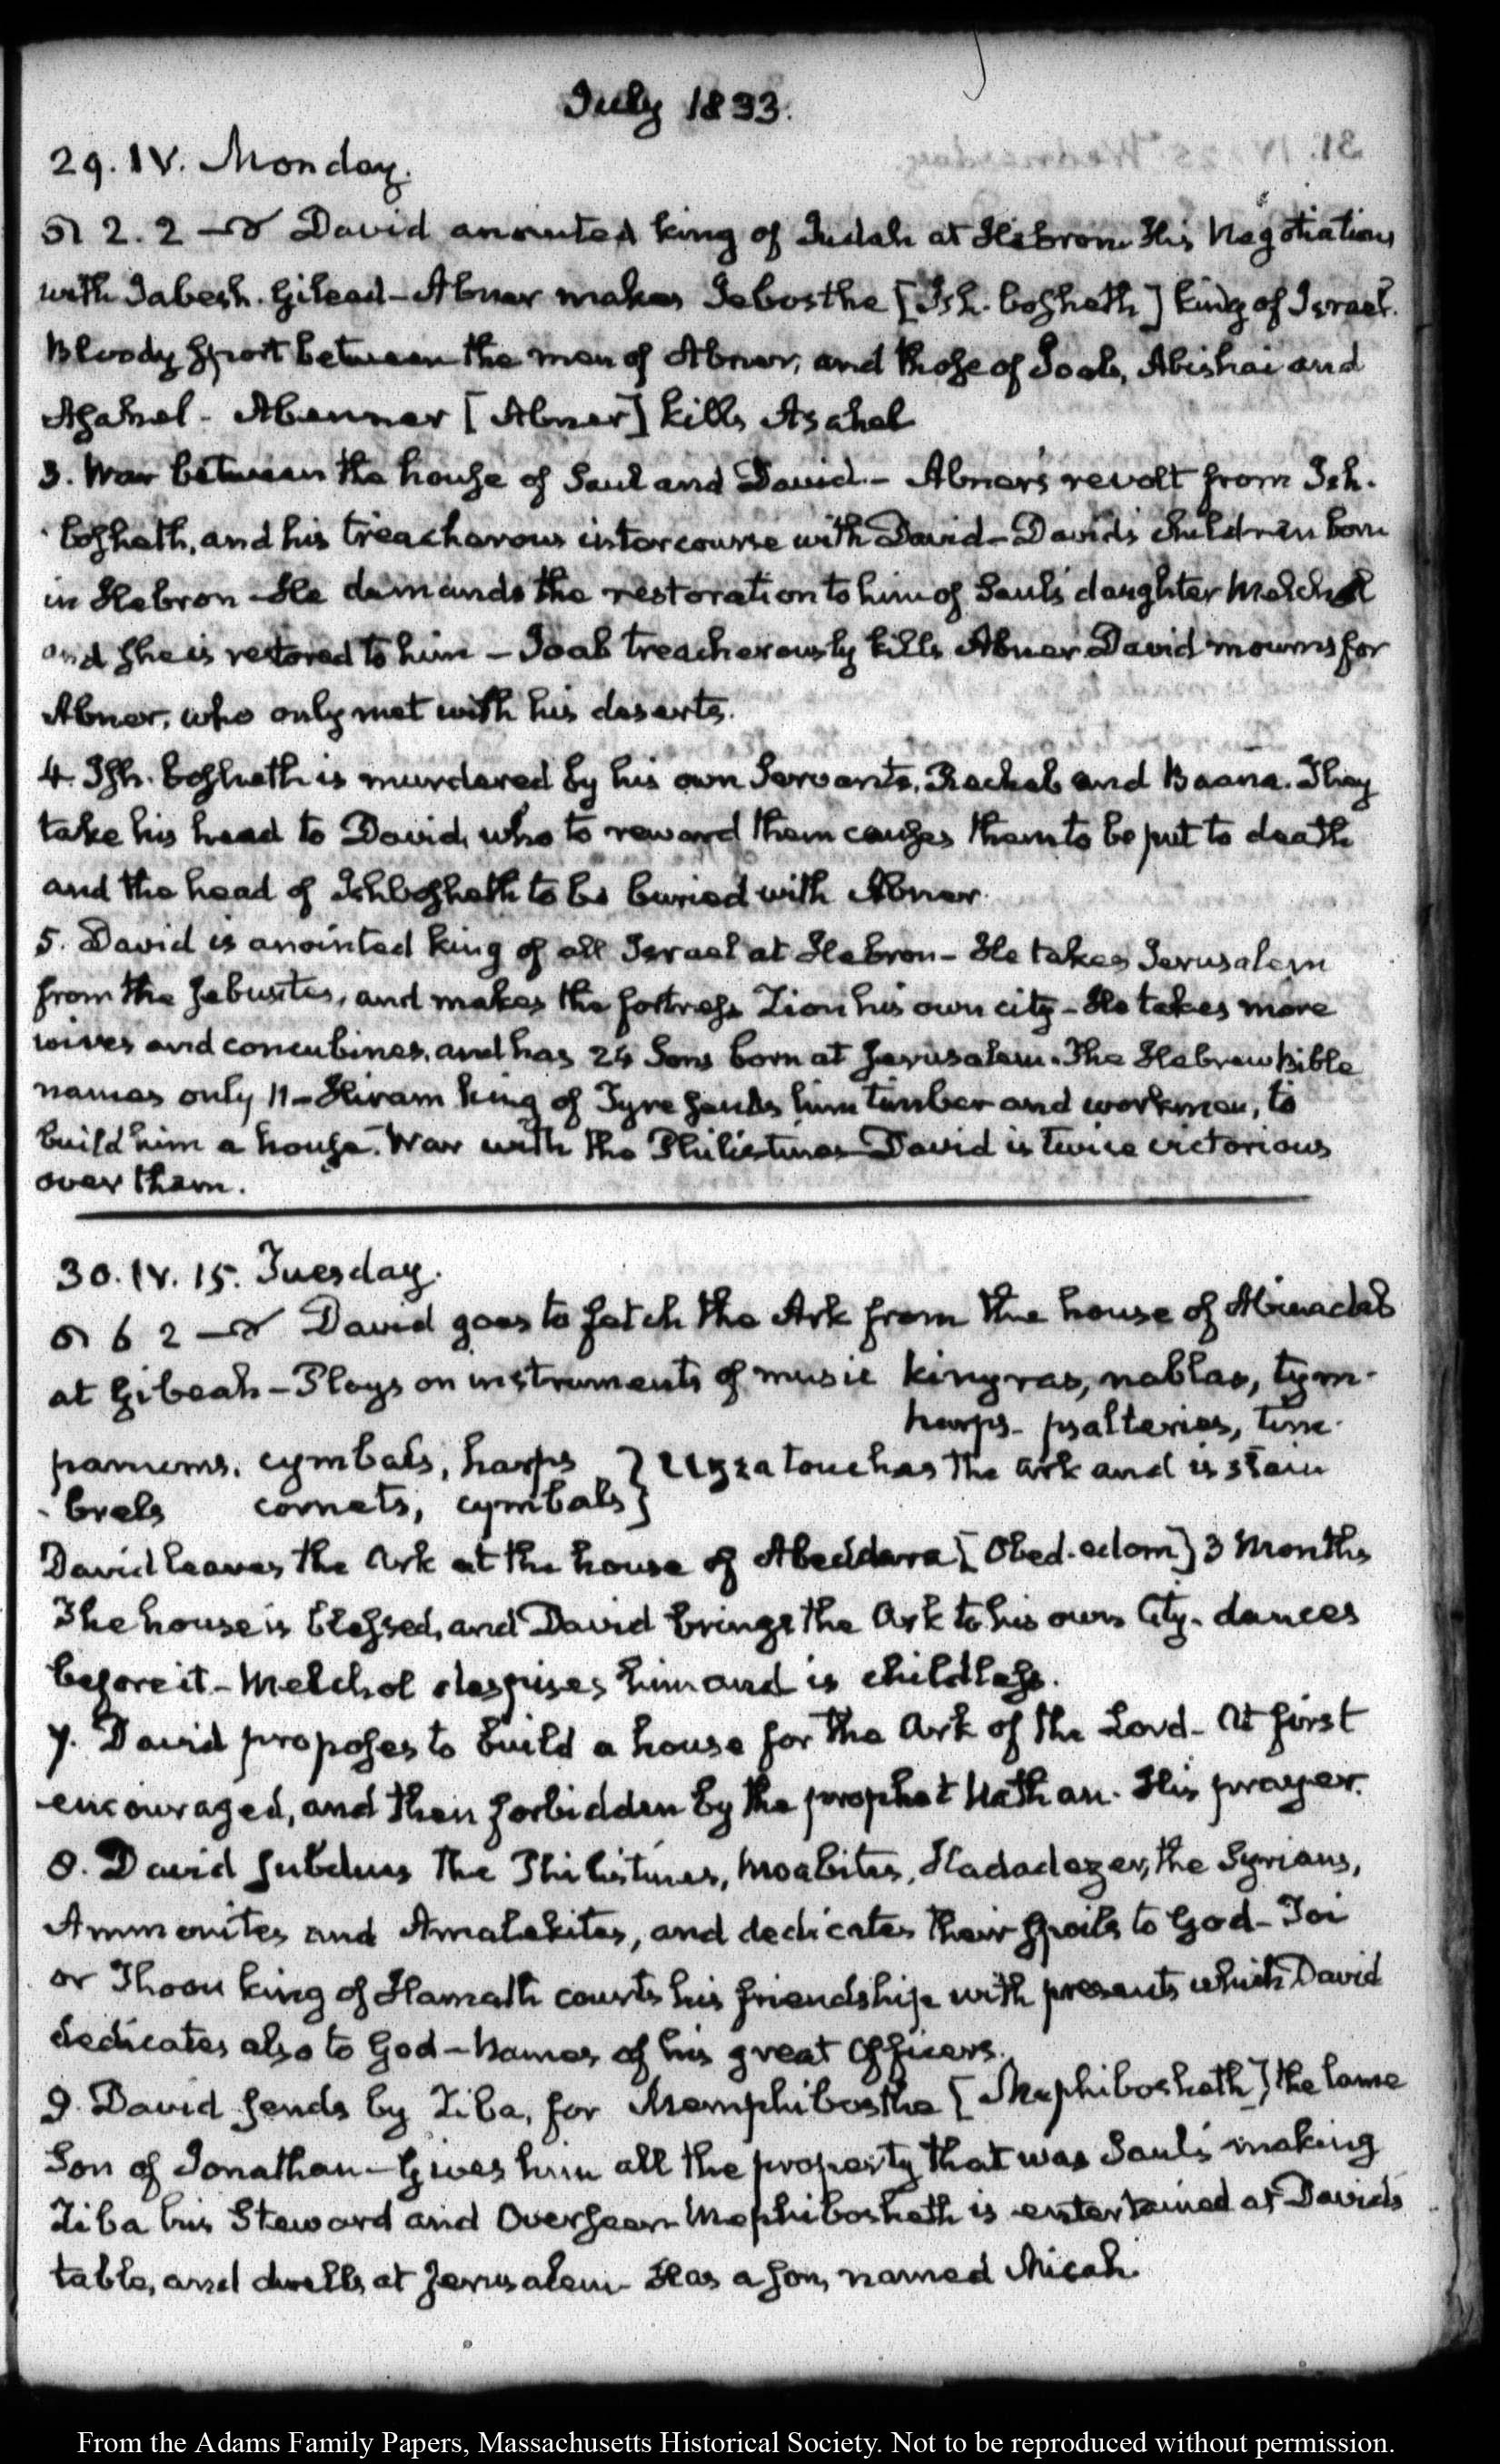 July 1833.
29. IV. Monday.
2. 2 David anointed king of Judah at Hebron His Negotiations
with Jabesh. Gilead – Abner makes Jebosthe [Ish. bosheth] king of Israel.
Bloody sport between the men of Abner, and those of Joab, Abishai and
Asahel – Abenner [Abner] kills Asahel
3. War between the house of Saul and David. – Abner's revolt from Ish.
bosheth, and his treacherous intercourse with David – David's children born
in Hebron – He demands the restoration to him of Saul's daughter Melchol
and she is restored to him – Joab treacherously kills Abner David mourns for
Abner, who only met with his deserts.
4. Ish. bosheth is murdered by his own Servants, Rechab and Baana. They
take his head to David, who to reward them causes them to be put to death
and the head of Ishbosheth to be buried with Abner.
5. David is anointed king of all Israel at Hebron – He takes Jerusalem
from the Jebusites, and makes the fortress Zion his own city – He takes more
wives and concubines, and has 24 Sons born at Jerusalem. The Hebrew Bible
names only 11 – Hiram king of Tyre sends him timber and workmen, to
build him a house. War with the Philistines David is twice victorious
over them.
30. IV. 15. Tuesday.
6 2 David goes to fetch the Ark from the house of Abinadab
at Gibeah – Plays on instruments of music kinyras, nablas, tym-
harps – psalteries, tim-
panums, cymbals, harps } Uzza touches the ark and is slain
-brels cornets, cymbals }
David leaves the Ark at the house of Abeddara [Obed. edom] 3 Months
The house is blessed, and David brings the Ark to his own City – dances
before it – Melchol despises him and is childless.
7. David proposes to build a house for the Ark of the Lord – At first
encouraged, and then forbidden by the prophet Nathan. His prayer.
8. David subdues the Philistines, Moabites, Hadadezer, the Syrians,
Ammonites and Amalekites, and dedicates their spoils to God – Toi
or Thoou king of Hamath courts his friendship with presents which David
dedicates also to God – Names of his great Officers.
9. David sends by Ziba, for Memphibosthe [Mephibosheth] the lame
Son of Jonathan – Gives him all the property that was Saul's making
Ziba his Steward and Overseer Mephibosheth is entertained at David's
table, and dwells at Jerusalem – Has a son, named Micah.
From the Adams Family Papers, Massachusetts Historical Society. Not to be reproduced without permission.